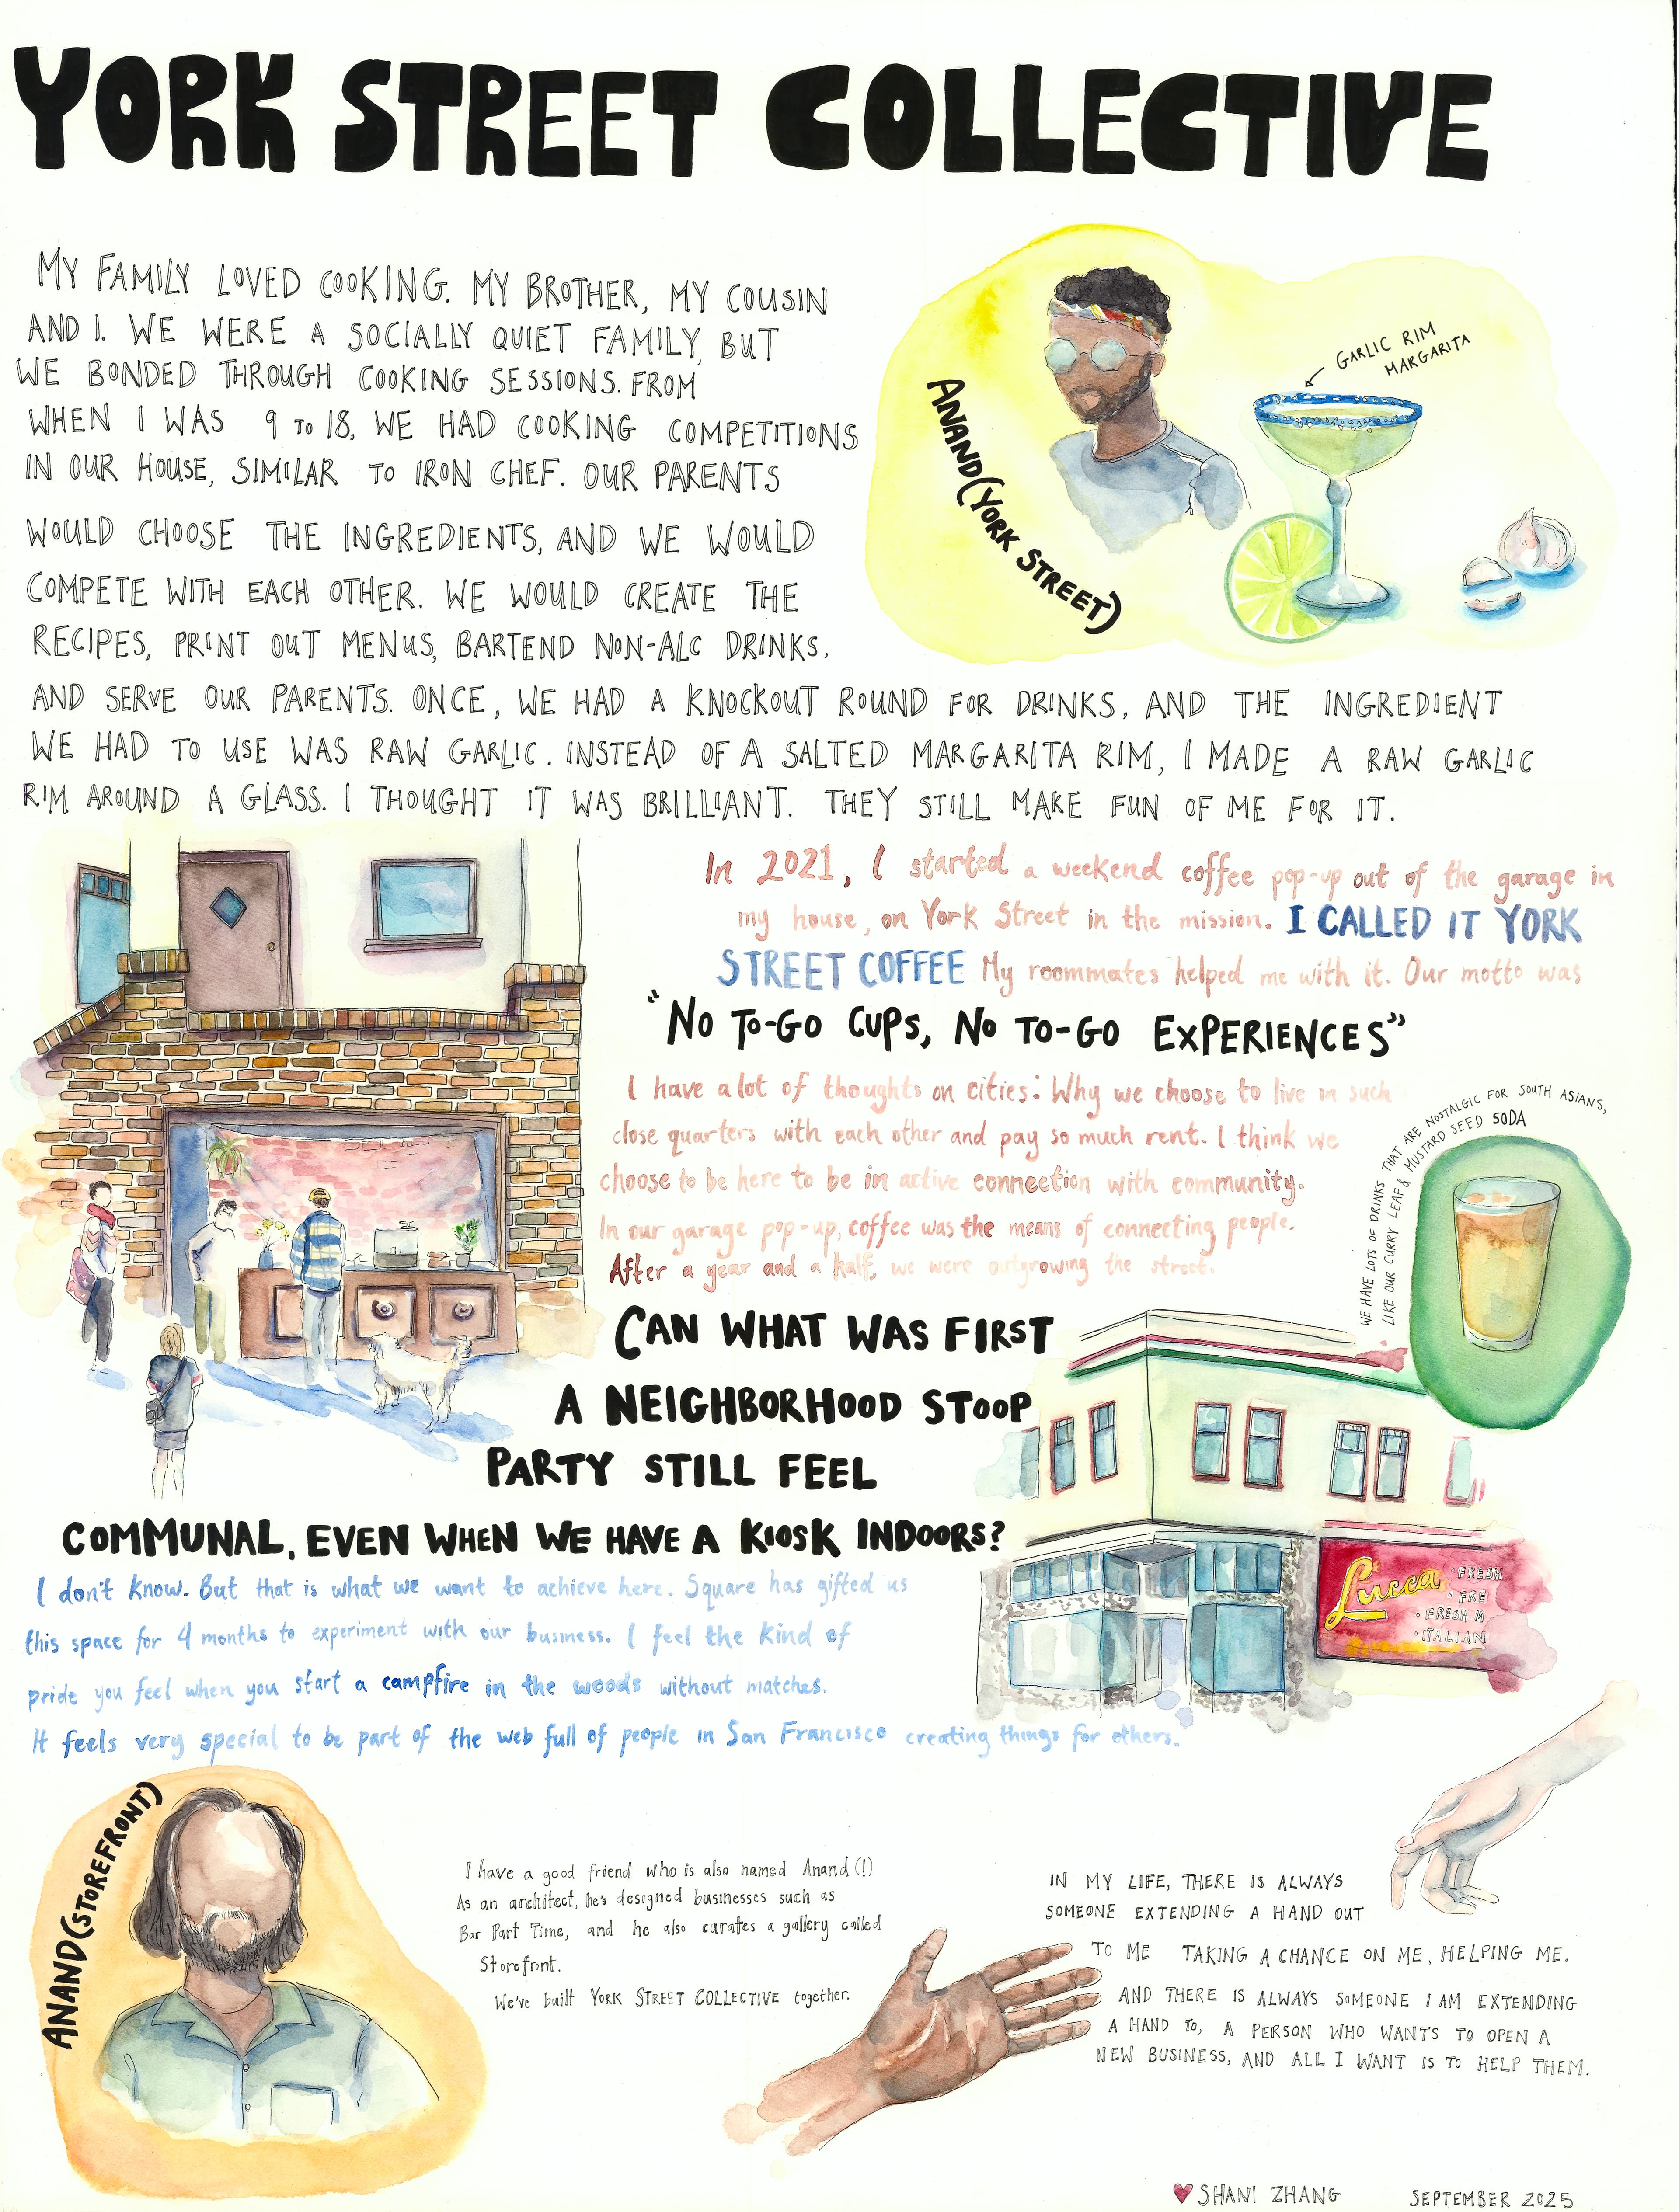 YORK STREET COLLECTIVE
MY FAMILY LOVED COOKING. MY BROTHER, MY COUSIN
AND I. WE WERE A SOCIALLY QUIET FAMILY, BUT
WE BONDED THROUGH COOKING SESSIONS. FROM
WHEN I WAS 9 TO 18, WE HAD COOKING COMPETITIONS
IN OUR HOUSE, SIMILAR TO IRON CHEF. OUR PARENTS
WOULD CHOOSE THE INGREDIENTS, AND WE WOULD
COMPETE WITH EACH OTHER. WE WOULD CREATE THE
RECIPES, PRINT OUT MENUS, BARTEND NON-ALC DRINKS,
AND SERVE OUR PARENTS. ONCE, WE HAD A KNOCKOUT ROUND FOR DRINKS, AND THE INGREDIENT
WE HAD TO USE WAS RAW GARLIC. INSTEAD OF A SALTED MARGARITA RIM, I MADE A RAW GARLIC
RIM AROUND A GLASS. I THOUGHT IT WAS BRILLIANT. THEY STILL MAKE FUN OF ME FOR IT.
ANAND (YORK STREET)
GARLIC RIM
MARGARITA
In 2021, I started a weekend coffee pop-up out of the garage in
my house, on York Street in the mission. I CALLED IT YORK
STREET COFFEE My roommates helped me with it. Our motto was
"NO TO-GO CUPS, NO TO-GO EXPERIENCES"
I have a lot of thoughts on cities: Why we choose to live in such
close quarters with each other and pay so much rent. I think we
choose to be here to be in active connection with community.
In our garage pop-up, coffee was the means of connecting people.
After a year and a half, we were outgrowing the street.
WE HAVE LOTS OF DRINKS THAT ARE NOSTALGIC FOR SOUTH ASIANS,
LIKE OUR CURRY LEAF & MUSTARD SEED SODA
CAN WHAT WAS FIRST
A NEIGHBORHOOD STOOP
PARTY STILL FEEL
COMMUNAL, EVEN WHEN WE HAVE A KIOSK INDOORS?
Lucca
• FRESH
• FRE
• FRESH M
• ITALIAN
I don't know. But that is what we want to achieve here. Square has gifted us
this space for 4 months to experiment with our business. I feel the kind of
pride you feel when you start a campfire in the woods without matches.
It feels very special to be part of the web full of people in San Francisco creating things for others.
ANAND (STOREFRONT)
I have a good friend who is also named Anand (!)
As an architect, he's designed businesses such as
Bar Part Time, and he also curates a gallery called
Storefront.
We've built YORK STREET COLLECTIVE together.
IN MY LIFE, THERE IS ALWAYS
SOMEONE EXTENDING A HAND OUT
TO ME TAKING A CHANCE ON ME, HELPING ME.
AND THERE IS ALWAYS SOMEONE I AM EXTENDING
A HAND TO, A PERSON WHO WANTS TO OPEN A
NEW BUSINESS, AND ALL I WANT IS TO HELP THEM.
SHANI ZHANG SEPTEMBER 2025